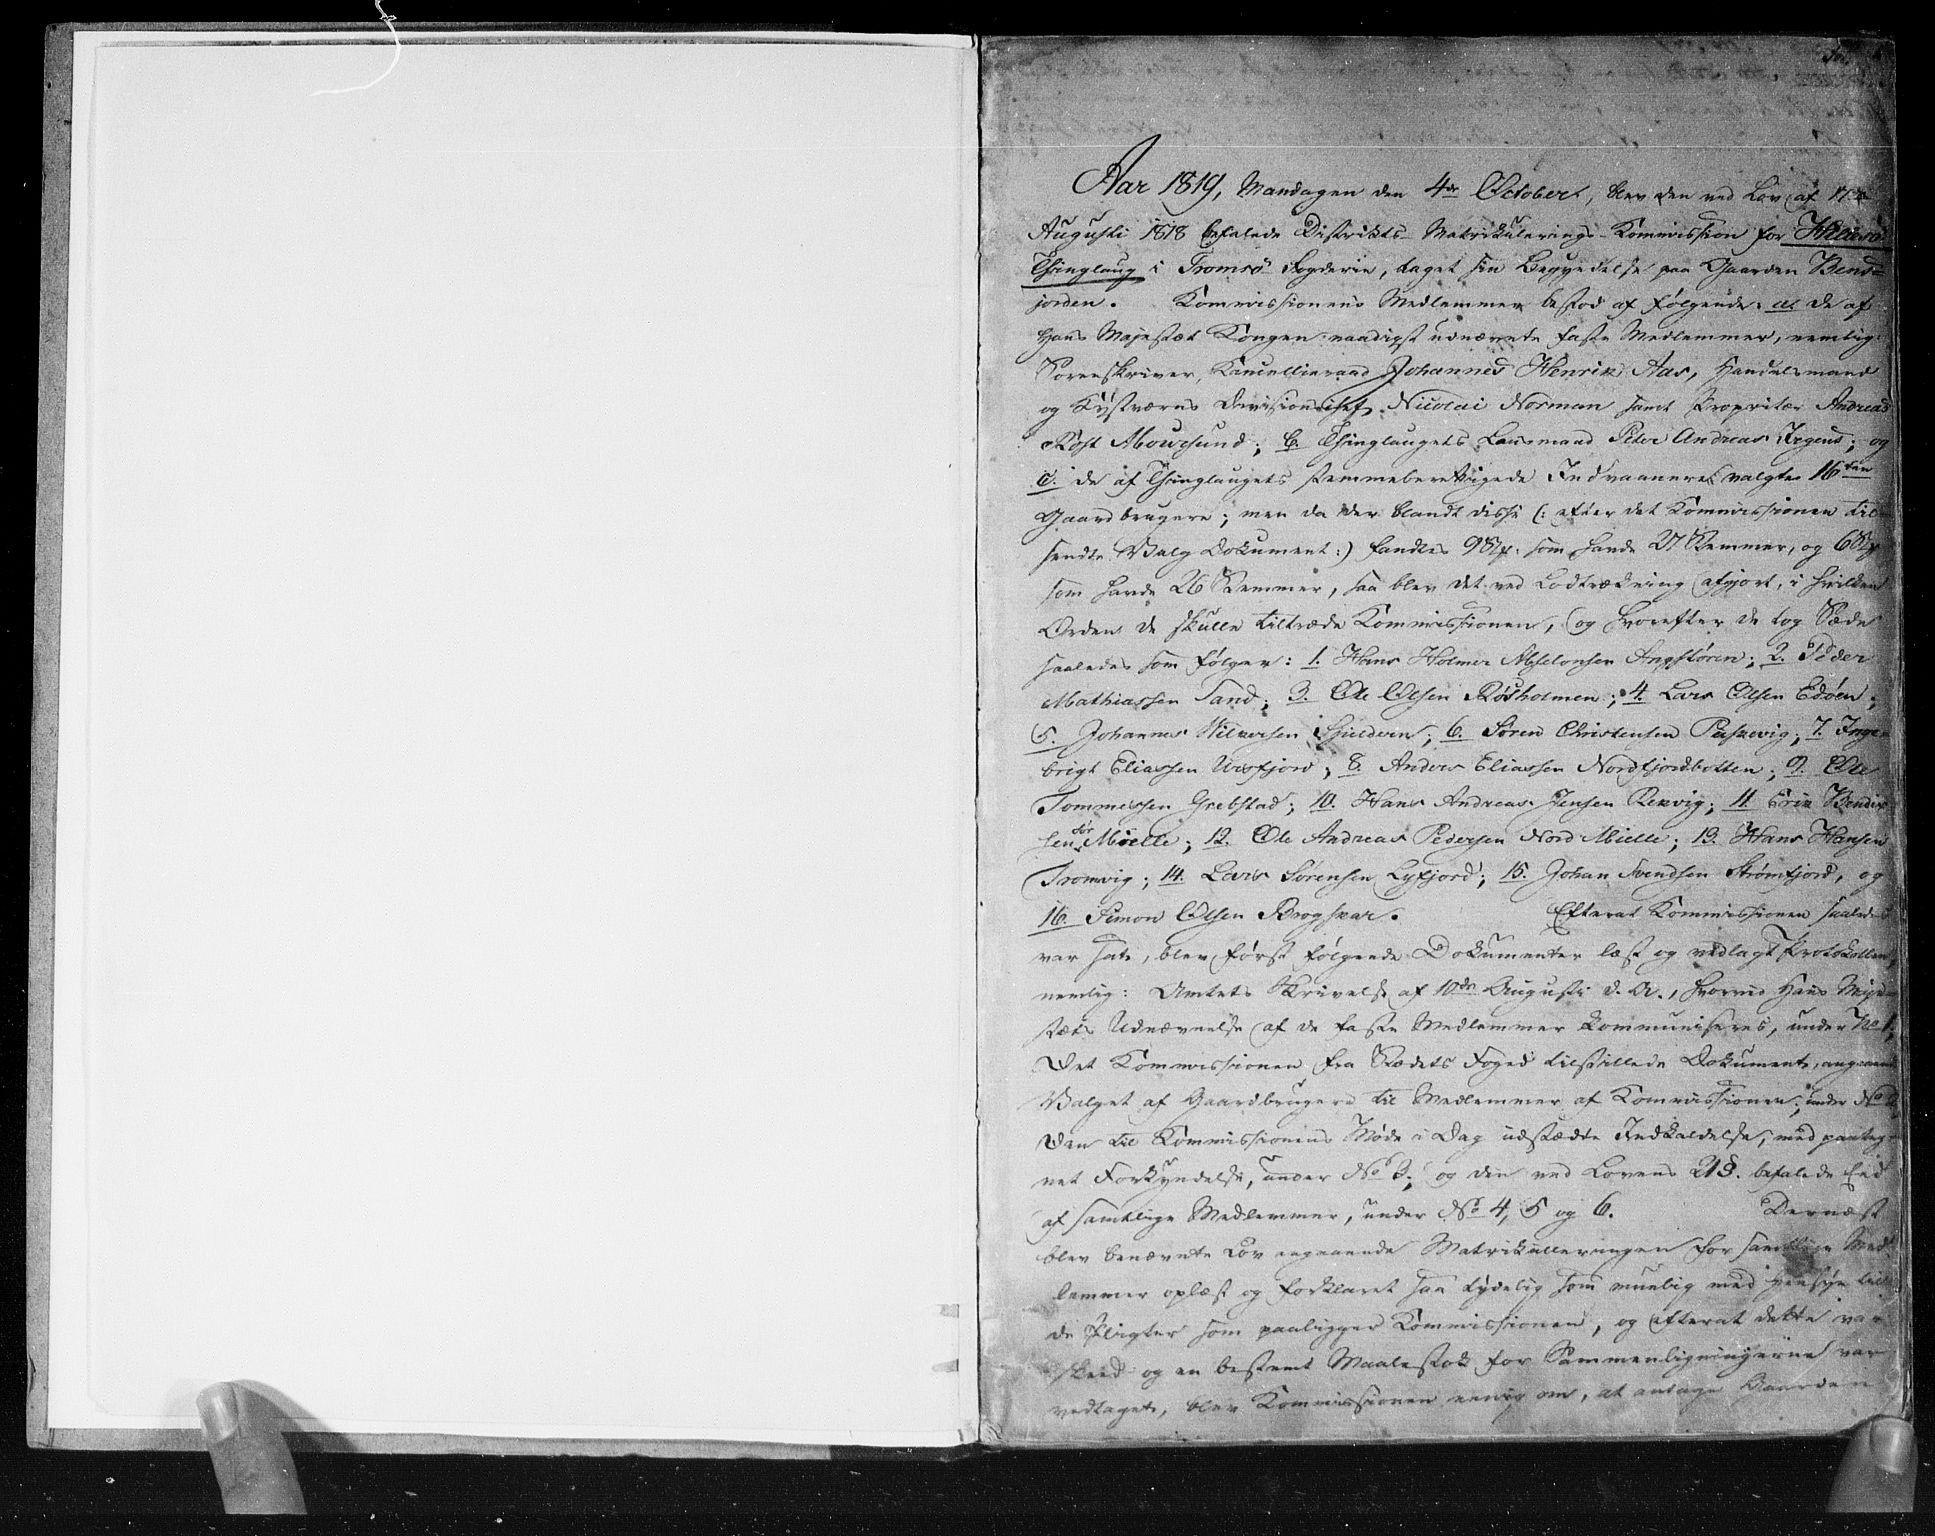 Aar 1819, Mandagen den 4de October, blev den ved Lov af 17de
Augusti 1818 befalede Distrikts-Matrikulerings-Kommission for Hillesø
Thinglaug i Tromsø Fogderie, taget sin Begyndelse paa Gaarden Bens-
jorden. Kommissionens Medlemmer bestod af følgende: a. de af
Hans Majestæt Kongen naadigst udnævnte faste Medlemmer, nemlig:
Sorenskriver, Kancellieraad Johannes Henrik Aas, Handelsmand
og Kystværns Divisionschef Nicolai Norman samt Propritær Andreas
Rost Mowesund; b. Thinglaugets Lensmand Peter Andreas Irgens; og
c. de af Thinglaugets stemmeberettigede Indvaanere valgte 16ten
Gaardbrugere; men da der blandt disse (: efter det Kommissionen til-
sendte Valg Dokument :) fandtes 9 Stk. som havde 27 Stemmer, og 6 Stk
som havde 26 Stemmer, saa blev det ved Lodtrækning afgjort, i hvilken
Orden de skulle tiltræde Kommissionen, og hvorefter de tog Sæde
saaledes som følger: 1. Hans Holmer Abselonsen Angstøren; 2. Peder
Mathiassen Sand; 3. Ole Olsen Røsholmen; 4. Lars Olsen Edøen;
5. Johannes Hilversen Spildern; 6. Søren Christensen Puskevig; 7. Inge-
brigt Eliassen Ursfjord; 8. Anders Eliassen Nordfjordbotten; 9. Ole
Tommessen Grebstad; 10. Hans Andreas Jensen Rekvig; 11. Erik Bendix-
sen Sør Mielle; 12. Ole Andreas Pedersen Nord Mielle; 13. Hans Hansen
Tromvig; 14. Lars Sørensen Lyfjord; 15. Johan Svendsen Strømfjord, og
16. Simon Olsen Brogskar. Efterat Kommissionen saaledes
var sat, blev først følgende Dokumenter læst og vedlagt Protokollen,
nemlig: Amtets Skrivelse af 10de Augusti d. A., hvorved Hans Maje-
stæts Udnævnelse af de faste Medlemmer kommuniseres, under No 1,
Det Kommissionen fra Stædets Foged tilstillede Dokument, angaaende
Valget af Gaardbrugere til Medlemmer af Kommissionen, under No 2,
Den til Kommissionens Møde i Dag udstædte Indkaldelse, med paateg-
net Forkyndelse, under No 3; og den ved Lovens 21 §. befalede Eed
af samtlige Medlemmer, under No 4, 5 og 6. Dernæst
blev benævnte Lov angaaende Matrikulleringen for samtlige Med-
lemmer oplæst og forklaret saa tydelig som muelig med Hensyn til
de Pligter som paaligger Kommissionen, og efterat dette var
skeed og en bestemt Maalestok for Sammenligningerne var
vedtaget, blev Kommissionen eenig om, at antage Gaarden